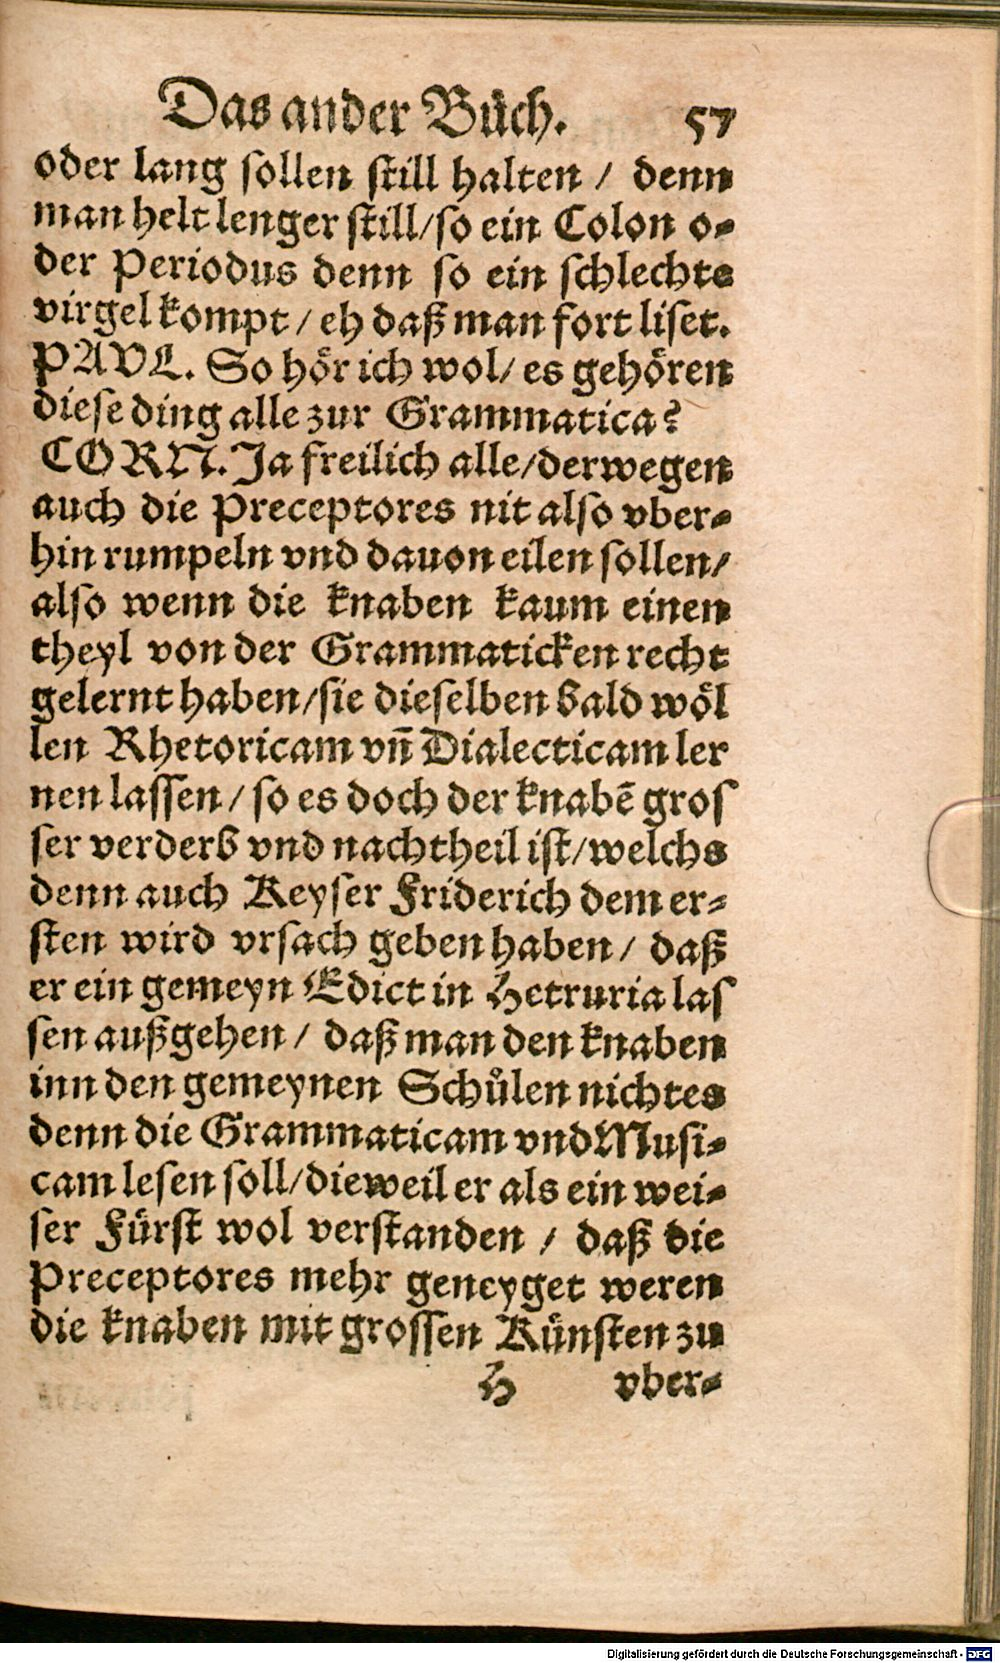 Das ander Bůch. 57
oder lang sollen still halten / denn
man helt lenger still/so ein Colon o-
der Periodus denn so ein schlechte
virgel kompt / eh daß man fort liset.
PAVL. So hör ich wol/ es gehören
diese ding alle zur Grammatica?
CORN. Ja freilich alle/derwegen
auch die Preceptores nit also vber-
hin rumpeln vnd dauon eilen sollen/
also wenn die knaben kaum einen
theyl von der Grammaticken recht
gelernt haben/sie dieselben bald wöl
len Rhetoricam vñ Dialecticam ler
nen lassen / so es doch der knabẽ gros
ser verderb vnd nachtheil ist/welchs
denn auch Keyser Friderich dem er-
sten wird vrsach geben haben / daß
er ein gemeyn Edict in Hetruria las
sen außgehen / daß man den knaben
inn den gemeynen Schůlen nichtes
denn die Grammaticam vnd Musi-
cam lesen soll/dieweil er als ein wei-
ser Fürst wol verstanden / daß die
Preceptores mehr geneyget weren
die knaben mit grossen Künsten zu
H vber-
Digitalisierung gefördert durch die Deutsche Forschungsgemeinschaft - DFG